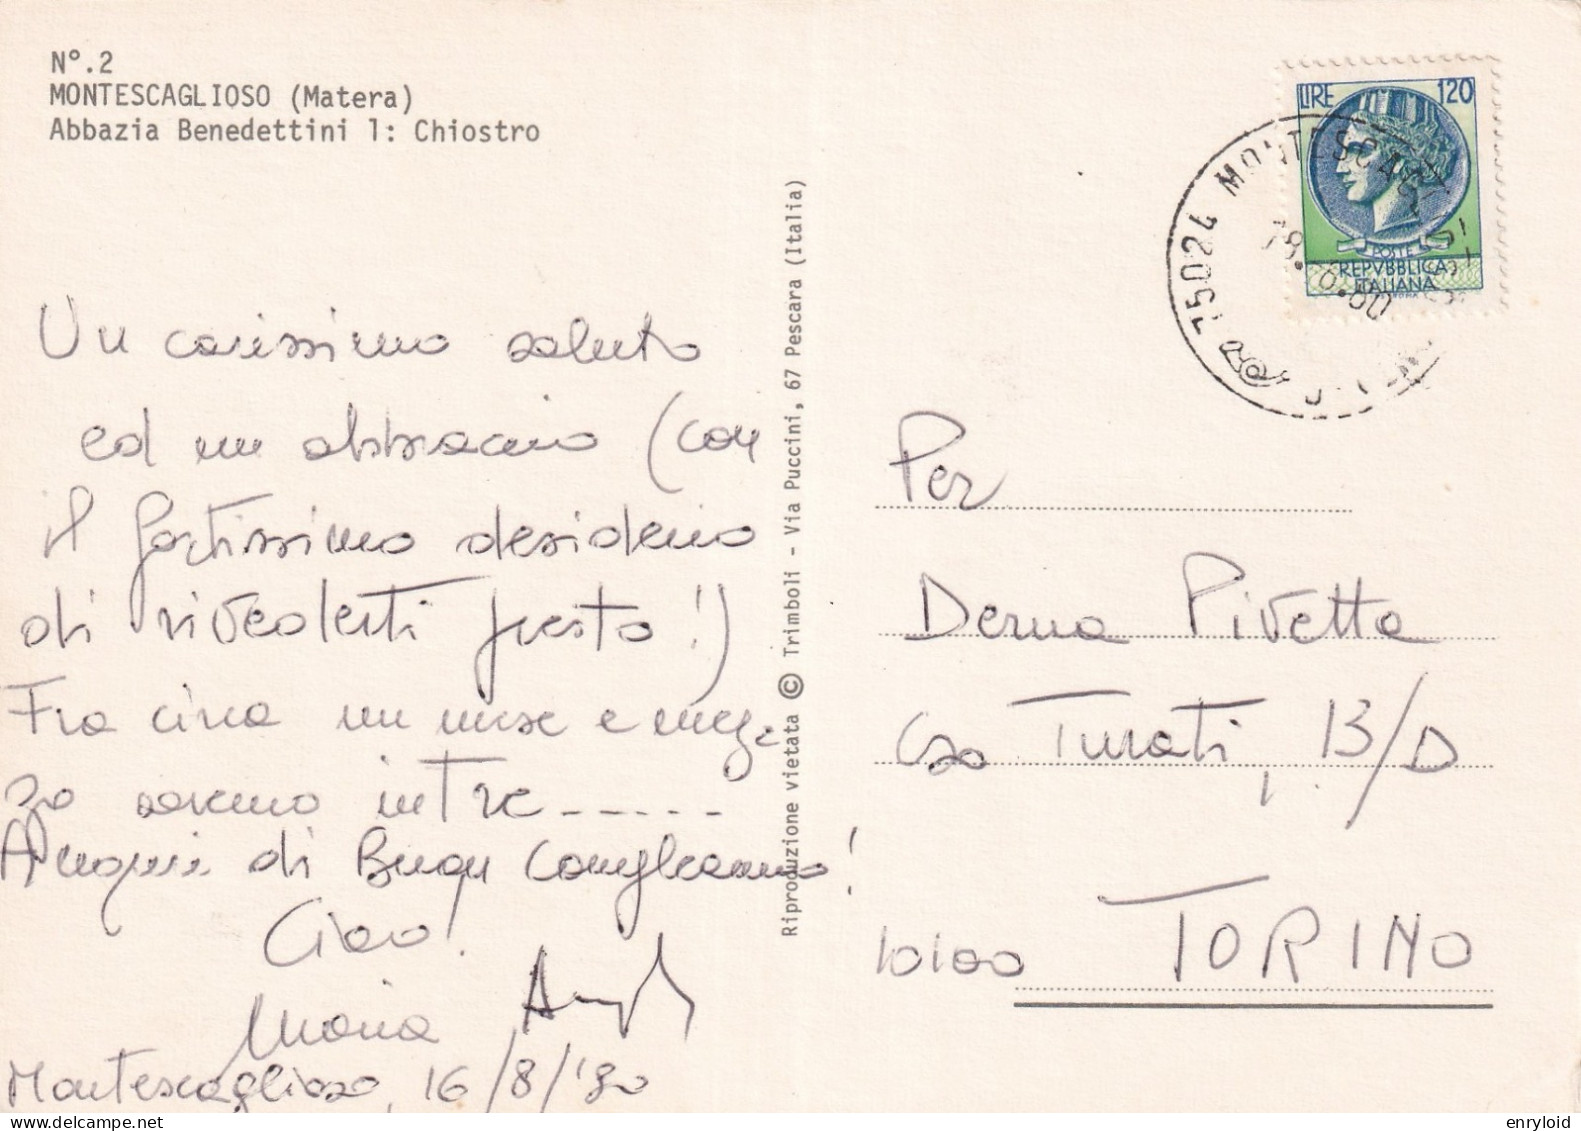 N°.2
MONTESCAGLIOSO (Matera)
Abbazia Benedettini 1: Chiostro
LIRE 120
POSTE
REPVBBLICA
ITALIANA
75024 MONTESCAGLIOSO
18. 8.80
Riproduzione vietata © Trimboli - Via Puccini, 67 Pescara (Italia)
Un carissimo saluto
ed un abbraccio (con
il fortissimo desiderio
di rivederti presto!)
Fra circa un mese e mez-
zo saremo in tre-----
Auguri di Buon Compleanno!
Ciao!
Maria
Montescaglioso, 16/8/'80
Per
Derna Pivetta
Cso Turati, 13/D
10100 TORINO
enryloid